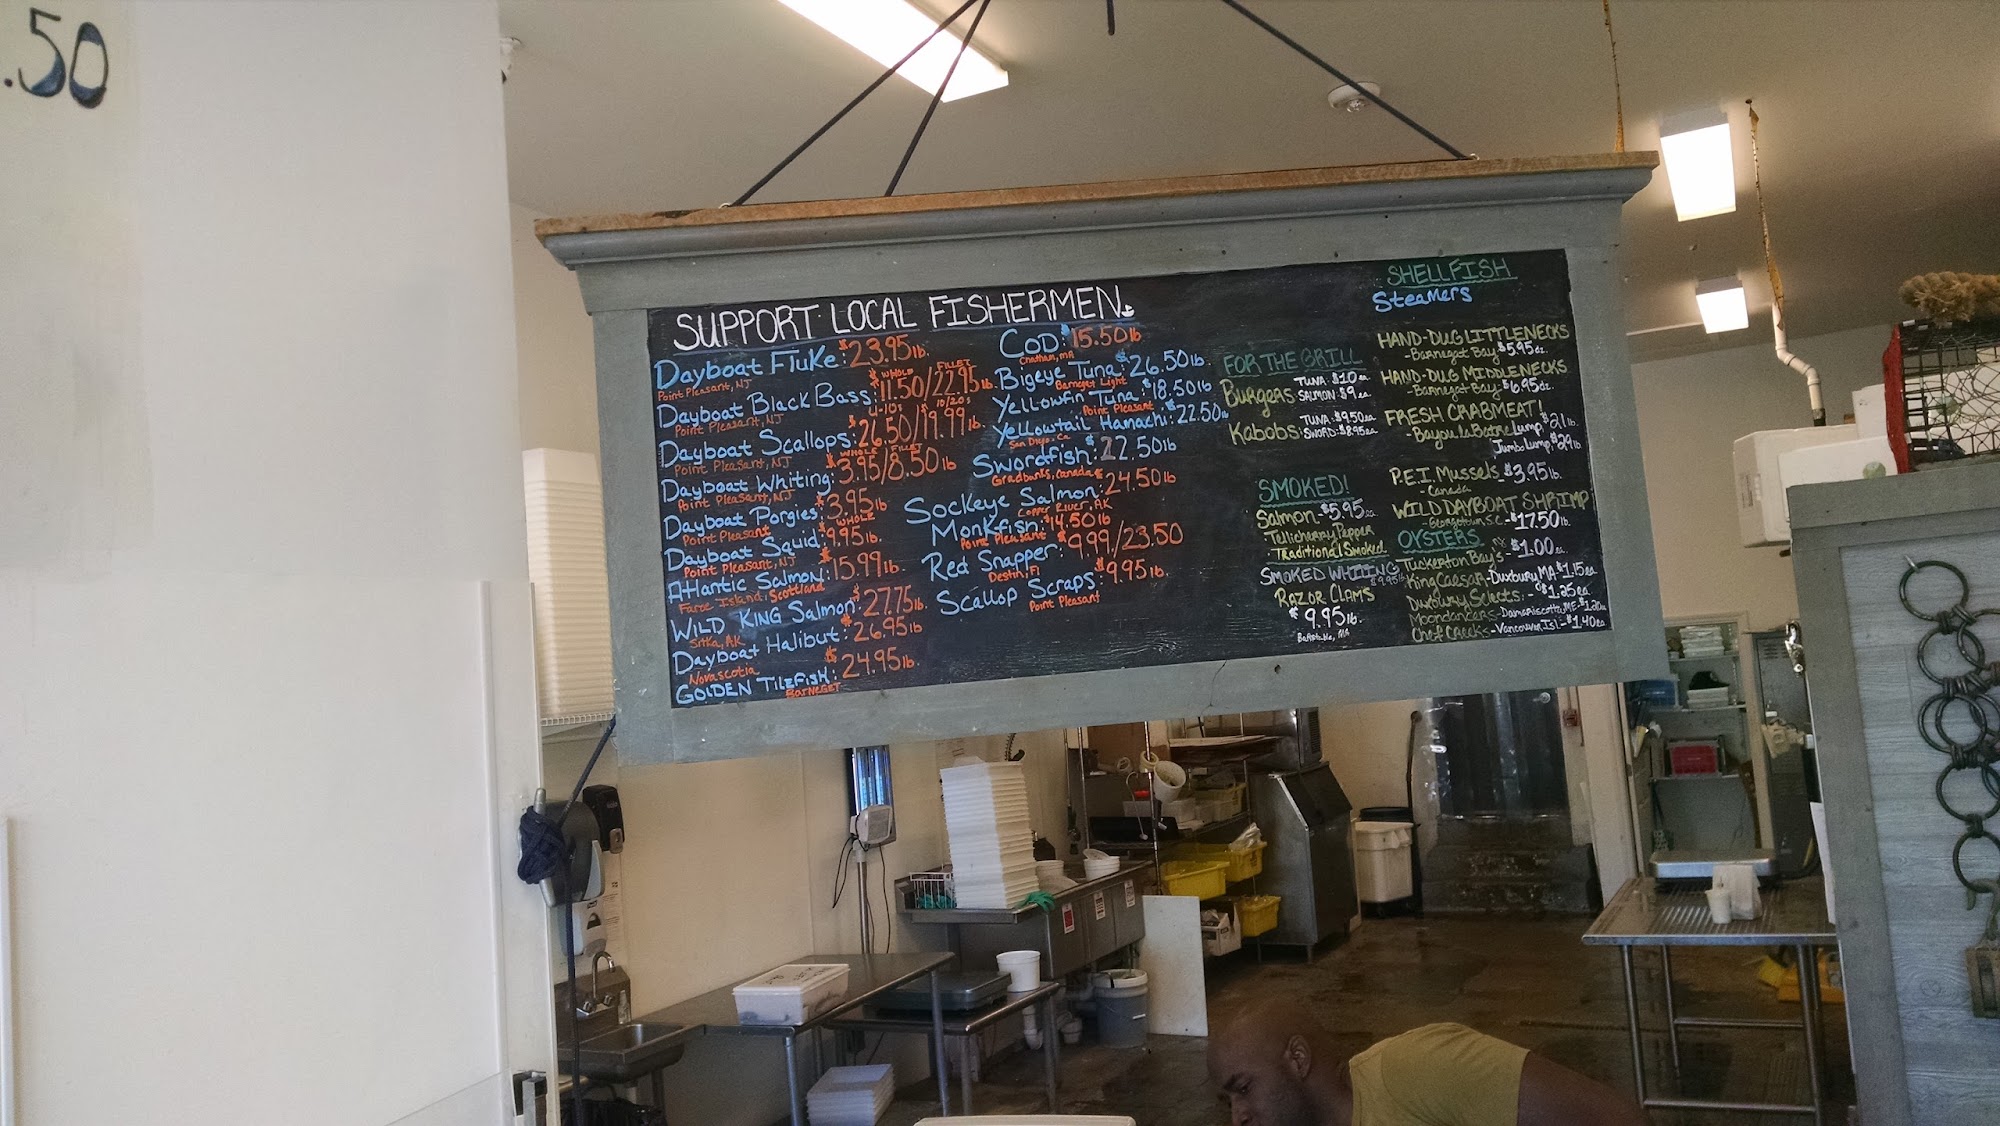 .50
SUPPORT LOCAL FISHERMEN
Dayboat Fluke: $23.95 lb.
Point Pleasant, NJ
WHOLE FILLET
Dayboat Black Bass: $11.50/22.95 lb.
Point Pleasant, NJ
U-10s 10/20s
Dayboat Scallops: $26.50/$19.99 lb.
Point Pleasant, NJ
WHOLE FILLET
Dayboat Whiting: $3.95/8.50 lb
Point Pleasant, NJ
Dayboat Porgies: $3.95 lb
Point Pleasant WHOLE
Dayboat Squid: $9.95 lb.
Point Pleasant, NJ
Atlantic Salmon: $15.99 lb.
Faroe Island, Scotland
WILD KING Salmon: $27.75 lb.
Sitka, AK
Dayboat Halibut: $26.95 lb
Novascotia
GOLDEN TILEFISH: $24.95 lb.
BARNEGET
COD: $15.50 lb
Chatham, MA
Bigeye Tuna: $26.50 lb.
Barneget Light
Yellowfin Tuna: $18.50 lb
Point Pleasant
Yellowtail Hamachi: $22.50
San Diego, Ca
Swordfish: $22.50 lb
Gradbanks, Canada
Sockeye Salmon: $24.50 lb
Copper River, AK
Monkfish: $14.50 lb
Point Pleasant
Red Snapper: $9.99/23.50
Destin, Fl
Scallop Scraps: $9.95 lb.
Point Pleasant
FOR THE GRILL
Burgers: TUNA $10 ea
SALMON: $9 ea
Kabobs: TUNA: $9.50 ea
SWORD: $8.95 ea
SMOKED!
Salmon - $5.95 ea
Tellicherry Pepper
Traditional Smoked
SMOKED WHITING
$9.95 lb
RAZOR CLAMS
$9.95 lb.
Barnstable, MA
SHELLFISH
Steamers
HAND-DUG LITTLENECKS
- Barnegat Bay $5.95 dz.
HAND-DUG MIDDLENECKS
- Barnegat Bay $6.95 dz.
FRESH CRABMEAT
- Bayou La Batre Lump $21 lb.
Jumbo Lump $29 lb
P.E.I. Mussels - $3.95 lb.
- Canada
WILD DAYBOAT SHRIMP
- Georgetown S.C. - $17.50 lb.
OYSTERS
Tuckerton Bay's - $1.00 ea.
King Caesar - Duxbury, MA $1.15 ea
Duxbury Selects: - $1.25 ea
Moondancers - Damariscotta, ME - $1.20 ea
Chef Creeks - Vancouver Isl. - $1.40 ea